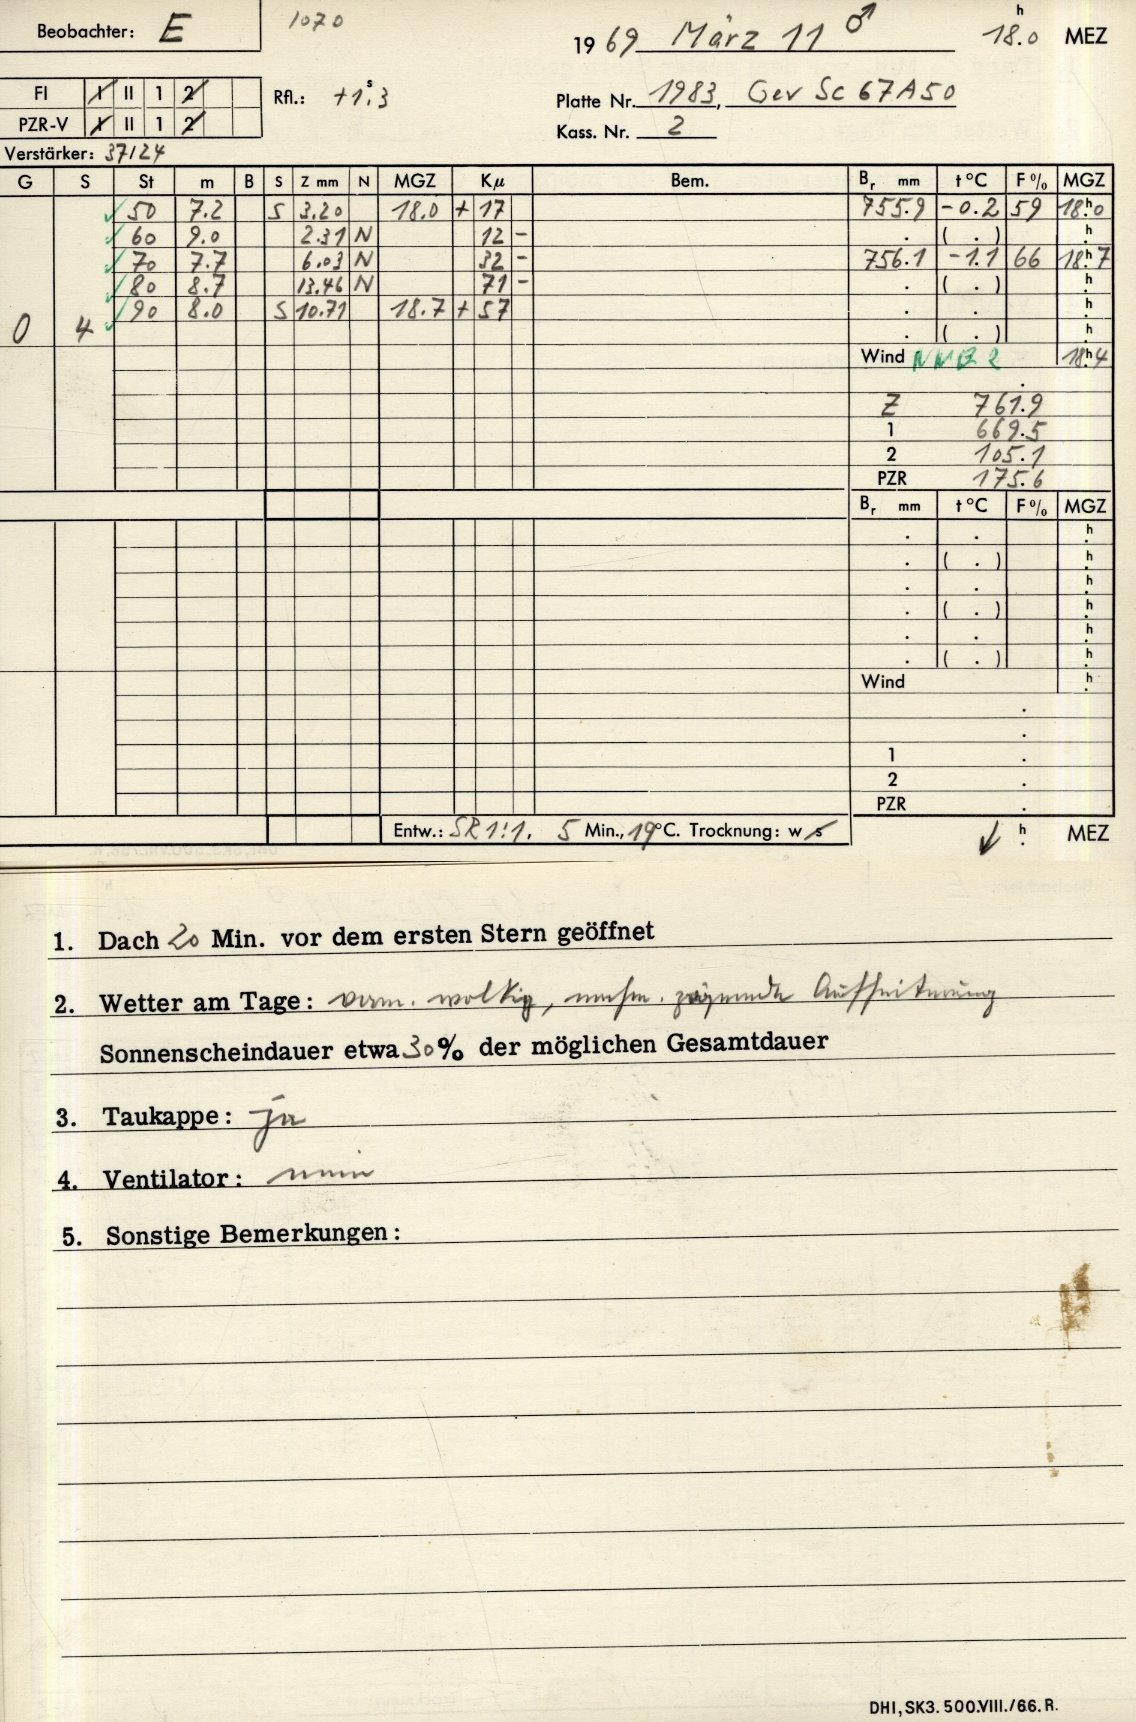 Beobachter: E 1070 1969 März 11 ♂ 18.0 h MEZ
FI I II 1 2 Rfl.: +1.3 s Platte Nr. 1983, Gev Sc 67A50
PZR-V I II 1 2 Kass. Nr. 2
Verstärker: 37/24
G S St m B S Z mm N MGZ Kμ Bem. Br mm t °C F % MGZ
✓ 50 7.2 S 3.20 18.0 + 17 755.9 -0.2 59 18.h0
✓ 60 9.0 2.31 N 12 - . ( . ) h.
✓ 70 7.7 6.03 N 32 - 756.1 -1.1 66 18.h7
✓ 80 8.7 13.46 N 71 - . ( . ) h.
✓ 90 8.0 S 10.71 18.7 + 57 . . h.
0 4 . ( . ) h.
Wind NNE 2 18.h4
.
Z 761.9
1 669.5
2 105.1
PZR 175.6
Br mm t °C F % MGZ
. . h.
. ( . ) h.
. . h.
. ( . ) h.
. . h.
. ( . ) h.
Wind h.
.
.
1 .
2 .
PZR .
Entw.: SR 1:1, 5 Min., 19°C. Trocknung: w s h. MEZ
1. Dach 20 Min. vor dem ersten Stern geöffnet
2. Wetter am Tage: vorm. wolkig, nachm. zögernde Aufheiterung
Sonnenscheindauer etwa 30% der möglichen Gesamtdauer
3. Taukappe: ja
4. Ventilator: nein
5. Sonstige Bemerkungen:
DHI, SK3. 500.VIII./66. R.